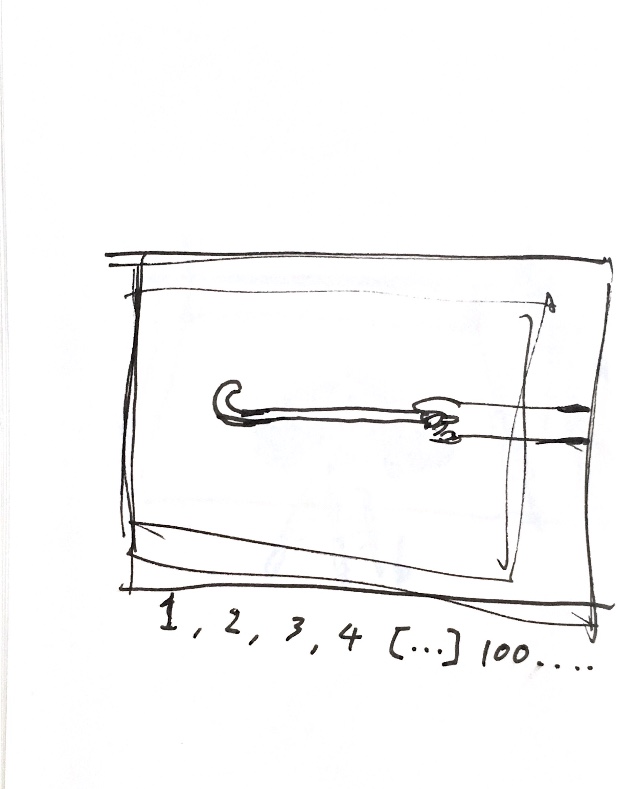 1, 2, 3, 4 [...] 100....